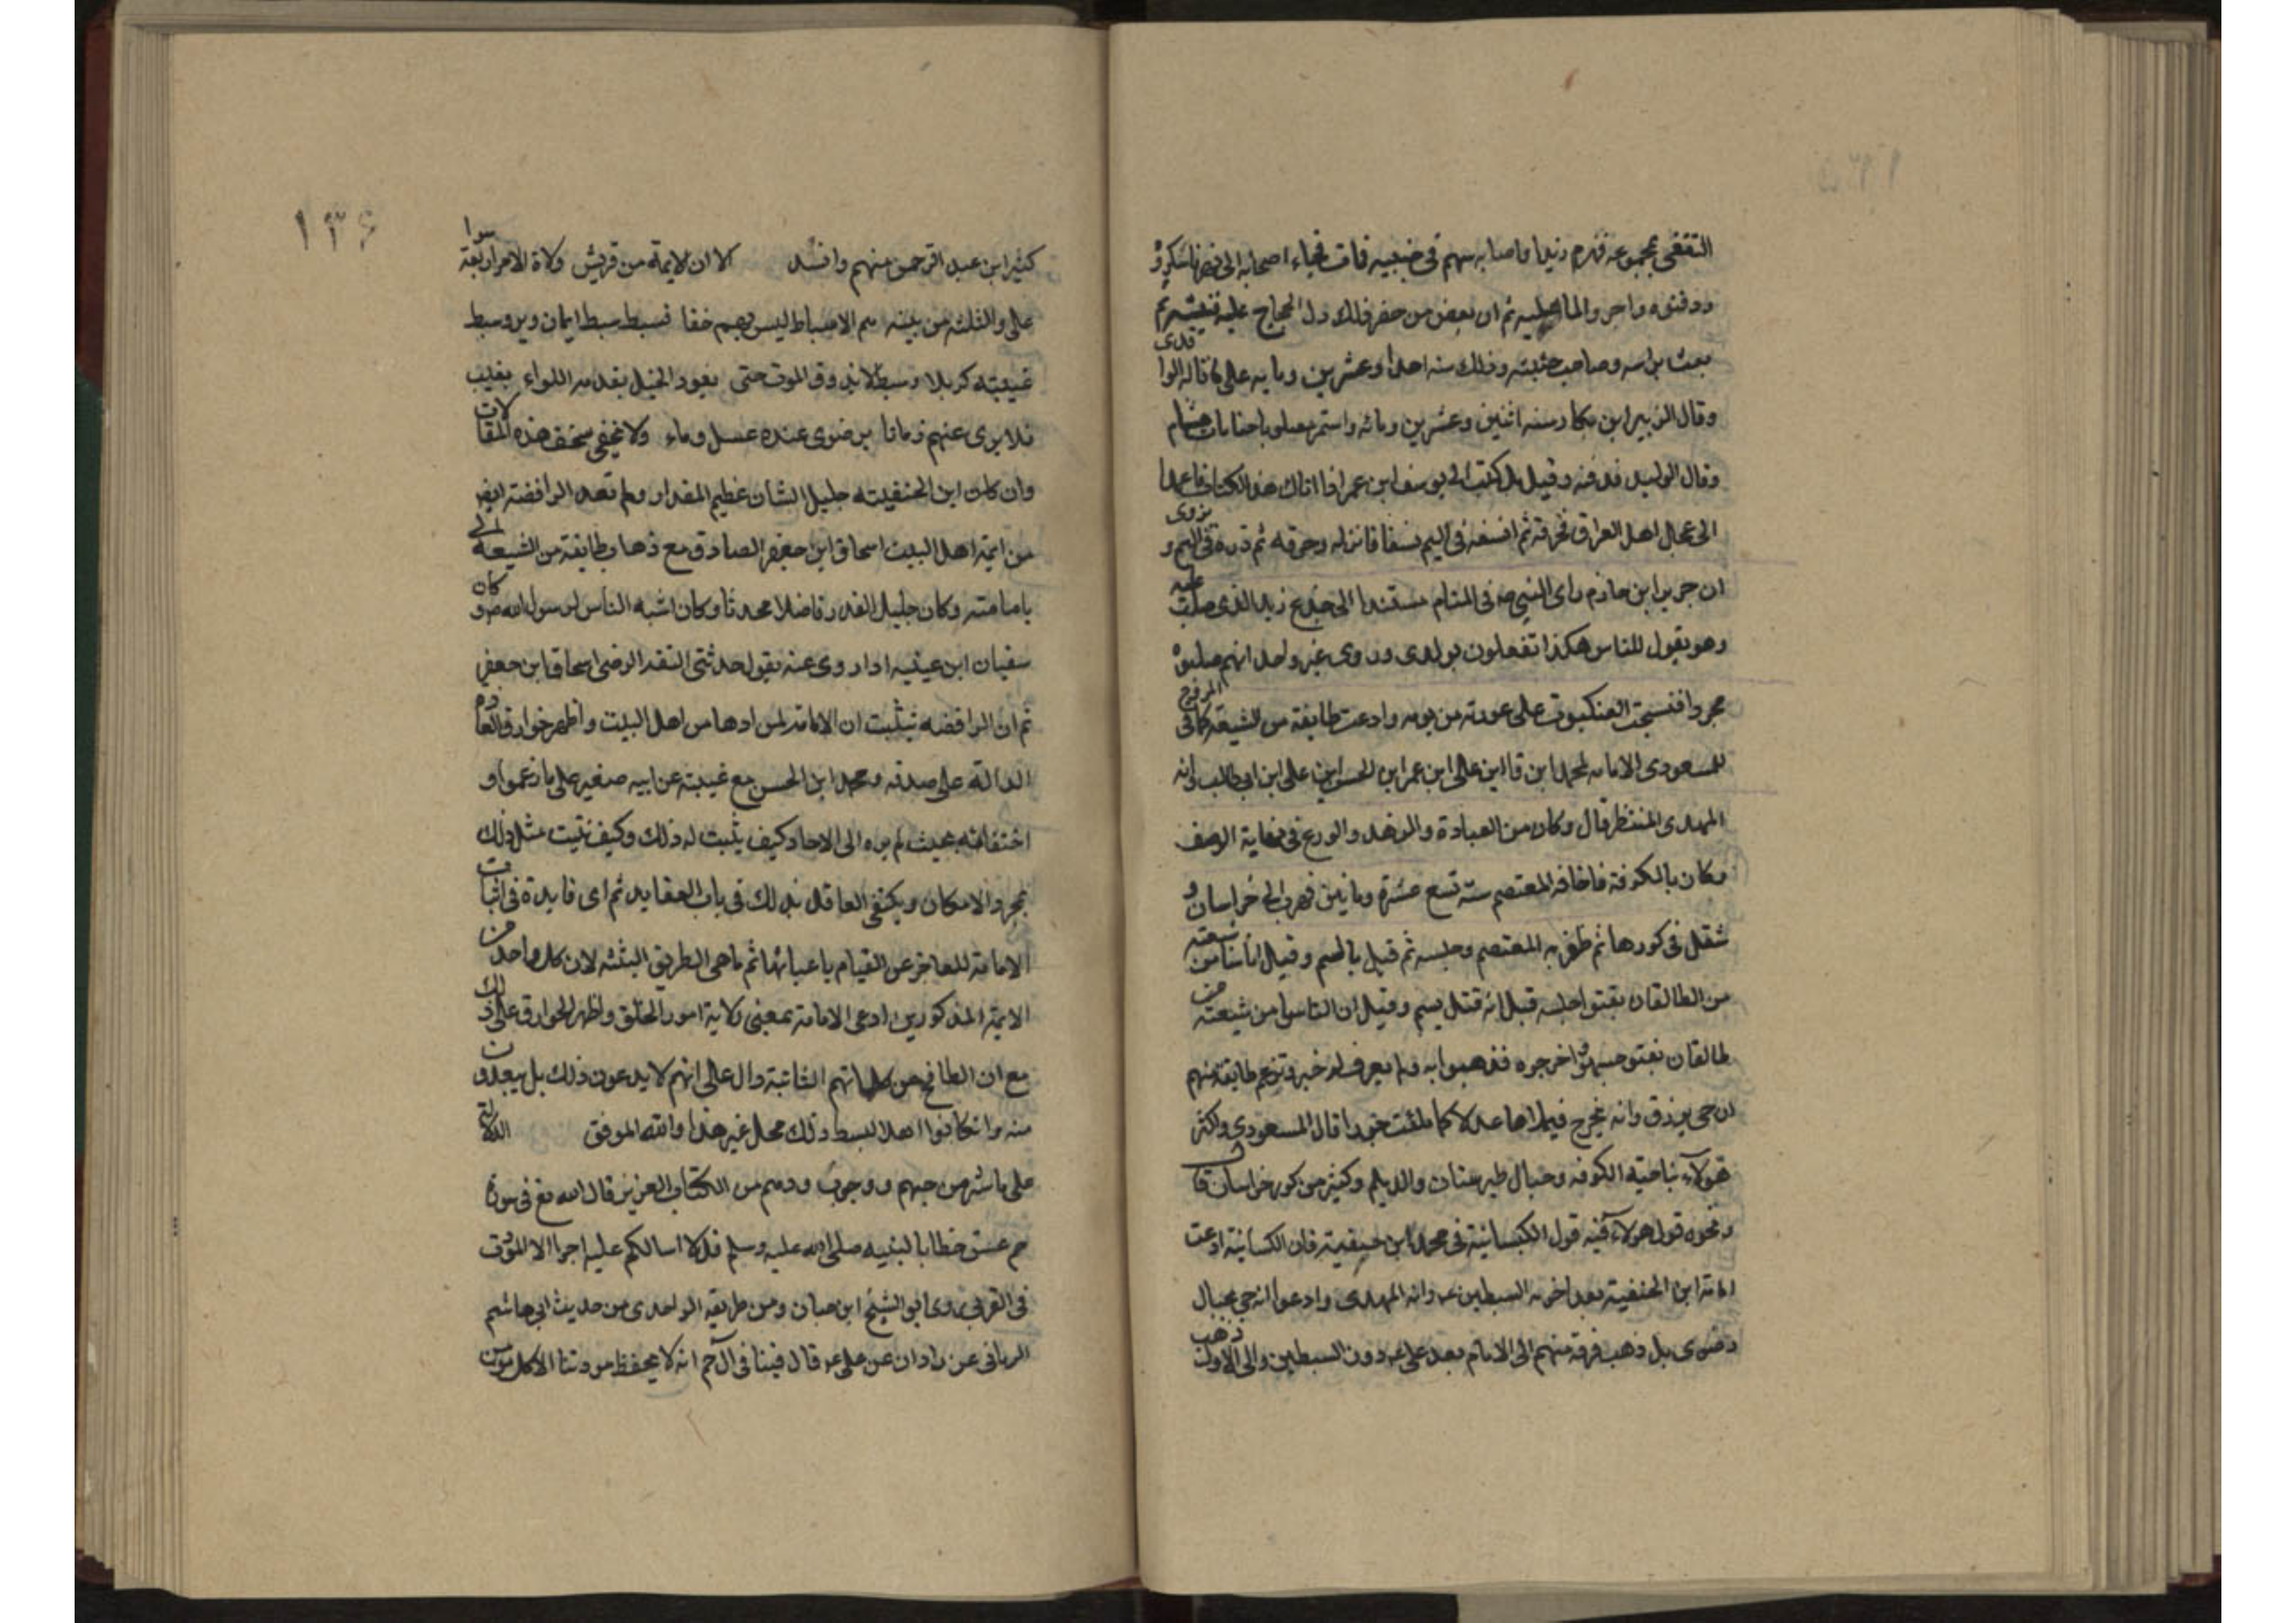 الثقفى بجموعه فهزم زيدا واصابه سهم فى جنبيه فمات فجاء اصحابه الى نهر فاسكروا
ودفنوه واجروا الماء عليه ثم ان بعض من حضر ذلك دل الحجاج عليه فنبشه ثم
بعث براسه وصلب جثته وذلك سنه احدا وعشرين ومايه على ما قاله الواقدى
وقال الزبير ابن بكار سنه اثنين وعشرين ومائه واستمر مصلوبا حتا مات هشام
وقال الوليد فدفنه وقيل بل كتب الى يوسف ابن عمر اذا اتاك هذا الكتاب فاعمد
الى عجال اهل العراق فحرقه ثم انسفه فى اليم نسفا فانزله وحرقه ثم ذره فى اليم ويروى
ان جرير ابن حازم راى النبى صه فى المنام مستندا الى جذع زيد الذى صلب عليه
وهو يقول للناس هكذا تفعلون بولدى وروى غير واحد انهم صلبوه
مجردا فنسجت العنكبوت على عورته من يومه وادعت طايفة من الشيعة كما فى المروج
للمسعودى الامامه لمحمد ابن قا ابن على ابن عمر ابن الحسن ابن على ابن ابى طالب وانه
المهدى المنتظر قال وكان من العبادة والزهد والورع فى نهاية الوصف
وكان بالكوفة فاخافه المعتصم سنة تسع عشرة ومايتين فهرب الى خراسان و
شقل فى كورها ثم ظفر به المعتصم وحبسه ثم قيل بالسم وقيل اناسا من شيعته
من الطالقان بقتوا حبسه قيل انه قتل بسم وقيل ان اناسا من شيعته من
طالقان نقبتو حبسه واخرجوه فذهبوا به ولم يعرف له خبر وتزعم طايفة منهم
ان حى يرزق وانه يخرج فيملاها عدلا كما ملئت جورا قال المسعودى واكثر
هؤلاء بناحية الكوفه وجبال طبرستان والديلم وكثير من كور خراسان قا
ونحوه قول هولاء فيه قول الكيسانية فى محمد ابن حنيفية فان الكسانية ادعت
امامة ابن الحنفية بعد اخويه السبطين عه وانه المهدى وادعوا انه حى بجبال
رضوى بل ذهب فرقة منهم الى الامام بعد على عه دون السبطين والى الاول ذهب
١٣٦
كثير ابن عبد الرحمن منهم وانشد الا ان الايمة من قريش ولاة الامر اربعة سوا
على والثلثة من بينه هم الاسباط ليس بهم خفا فسبط سبط ايمان وبر وسبط
غيبته كربلا وسبط لا يذوق الموت حتى يعود الخيل يقدمه اللواء يغيب
فلا يرى عنهم زمانا برضوى عنده عسل وماء ولا يخفى سخف هذه المقالات
وان كان ابن الحنفيته جليل الشان عظيم المقدار ولم تعد الرافضته ايض
من ايمة اهل البيت اسحاق ابن جعفر الصادق مع ذهاب طايفة من الشيعه الى
بامامته وكان جليل القدر فاضلا محدثا وكان اشبه الناس لرسول الله صه و كان
سفيان ابن عينيه اذا روى عنه يقول حدثنى الثقه الرضى اسحاق ابن جعفر
ثم ان الرافضه تثبت ان الامامة لمن ادها من اهل البيت واظهر خوارق العاده
الدالة على صدقه ومحمد ابن الحسن مع غيبته عن ابيه صغير على ما زعموا و
اختفائه بحيث لم يره الى الاحاد كيف يثبت له ذلك وكيف تثبت مثل ذلك
بمجرد الامكان ويكتفى العاقل بذلك فى باب العقايد ثم اى فايدة فى اثبات
الامامة للعاجز عن القيام باعبائها ثم ما هى الطريق المثبته لان كل واحد من
الايمة المذكورين ادعى الامامة بمعنى ولاية امور الخلق واظهر الخوارق على ذلك
مع ان الطافح من كلماتهم الثابتة دال على انهم لا يدعون ذلك بل يبعدون
منه وان كانوا اهلا لبسط ذلك محل غير هذا والله الموفق الدلالة
على ما شرمن حبهم ووجوب ودهم من الكتاب العزيز قال الله تع فى سورة
حم عسق خطابا لبنيه صلى الله عليه وسلم قل لا اسالكم عليه اجرا الا المودت
فى القربى روى ابو الشيخ ابن حبان ومن طريقه الواحدى من حديث ابى هاشم
الرمانى عن زادان عن على عه قال فينا فى آل حم انه لا يحفظ مودتنا الا كل مومن